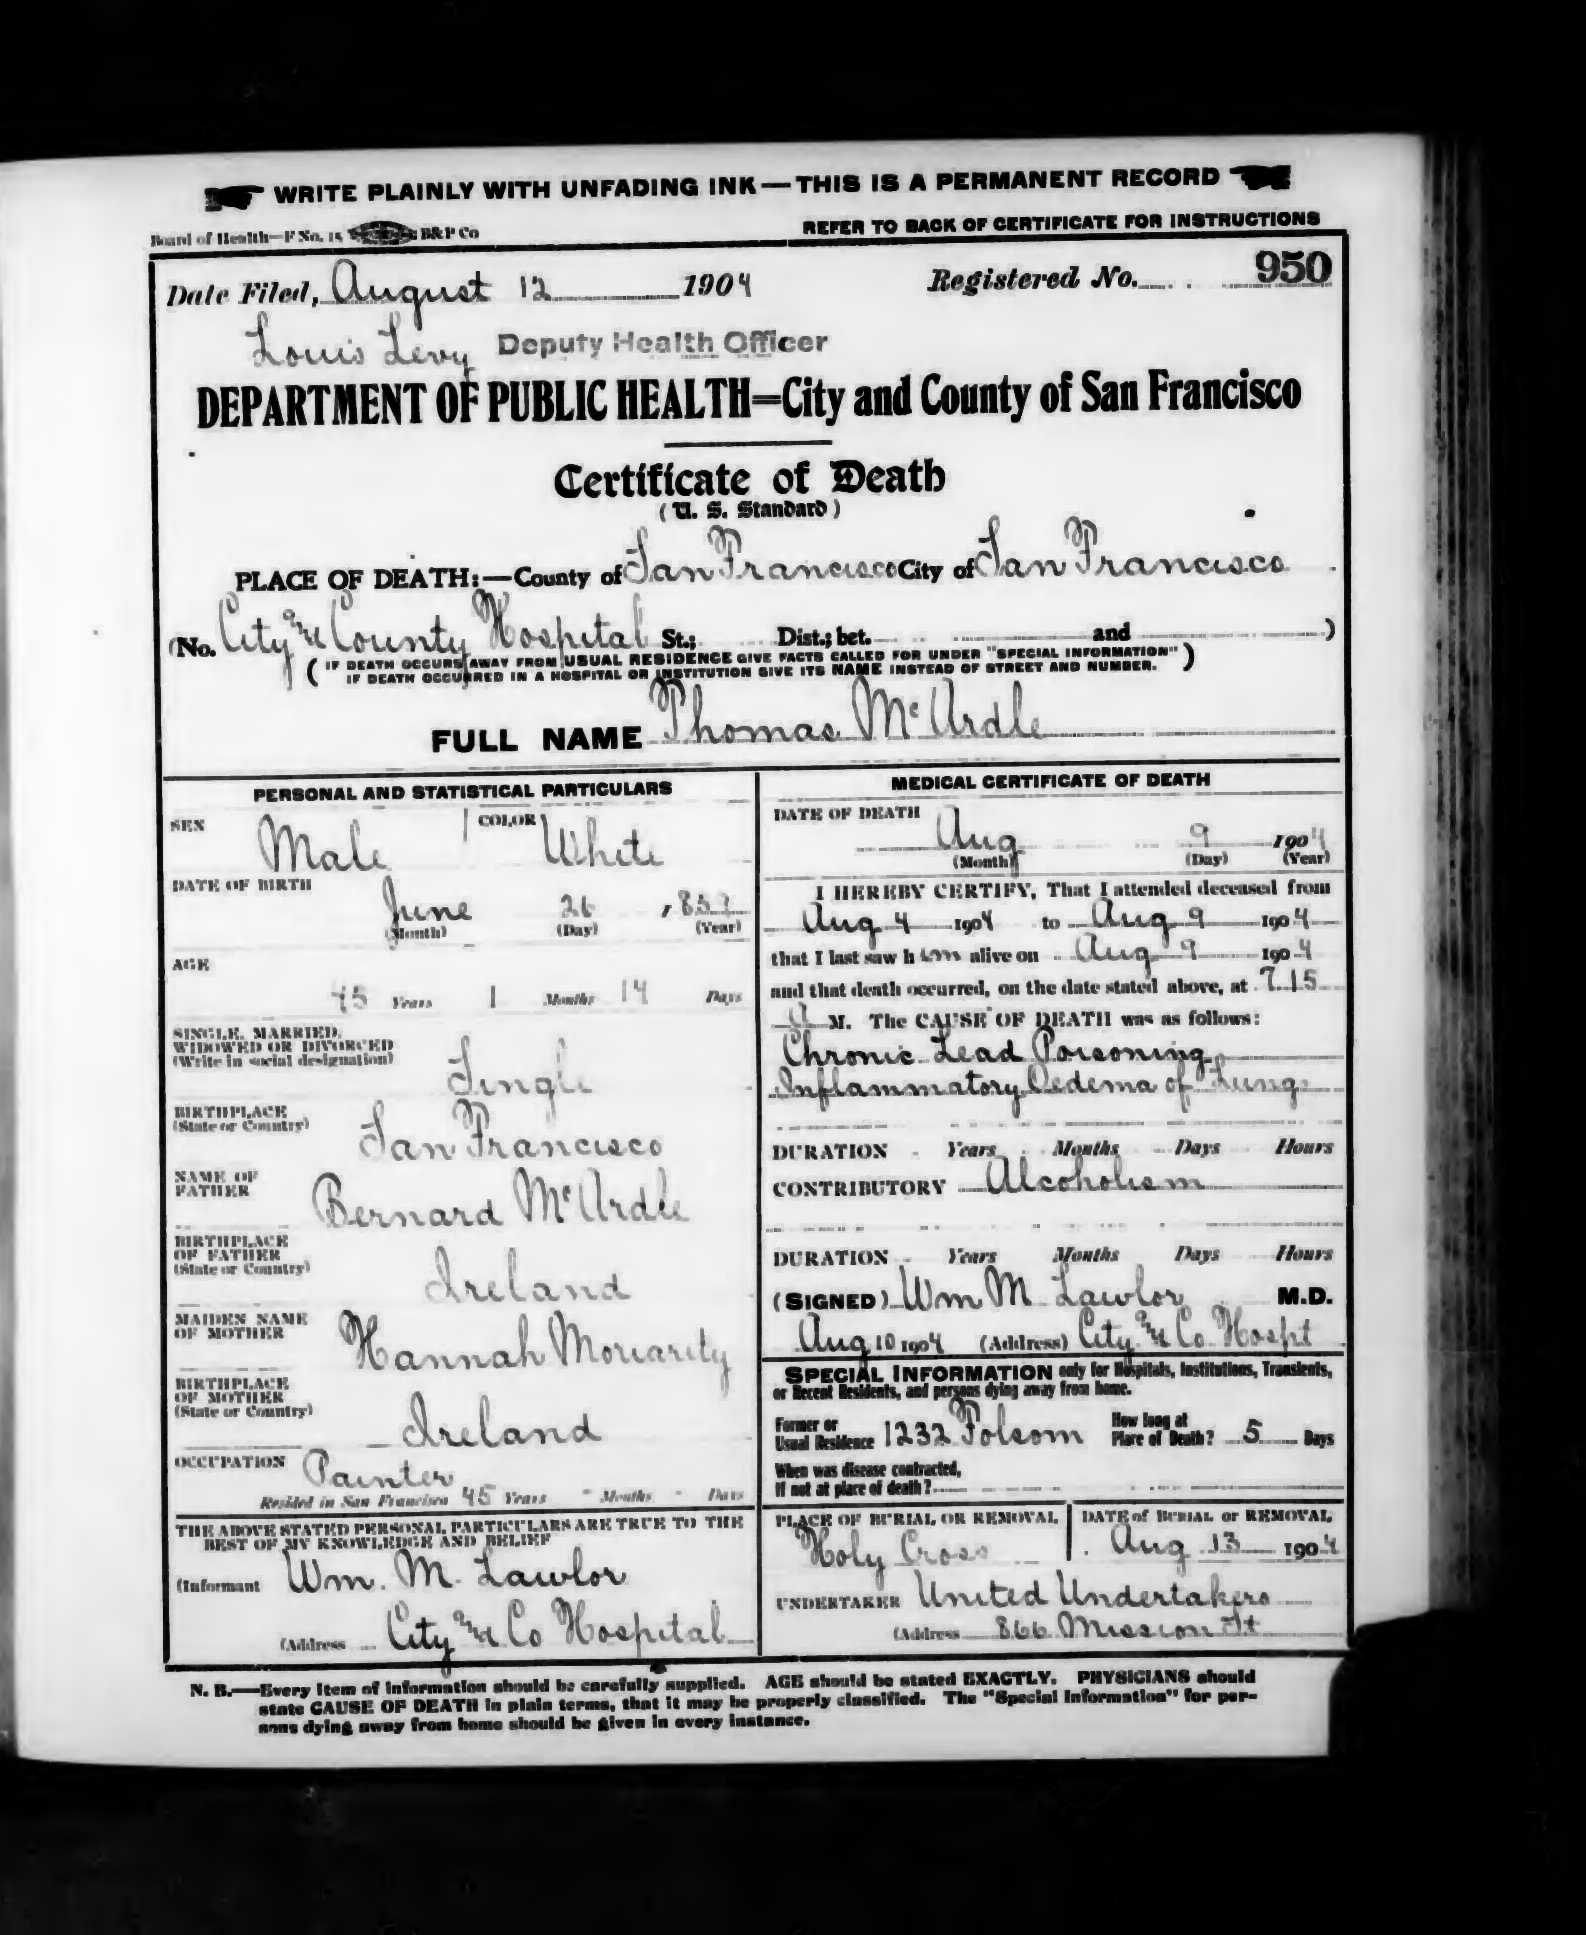 WRITE PLAINLY WITH UNFADING INK—THIS IS A PERMANENT RECORD
Board of Health—F No. 15 B&P Co REFER TO BACK OF CERTIFICATE FOR INSTRUCTIONS
Date Filed, August 12 1904 Registered No. 950
Louis Levy Deputy Health Officer
DEPARTMENT OF PUBLIC HEALTH=City and County of San Francisco
Certificate of Death
(U. S. Standard)
PLACE OF DEATH:—County of San Francisco City of San Francisco
(No. City and County Hospital St.; Dist.; bet. and )
(IF DEATH OCCURS AWAY FROM USUAL RESIDENCE GIVE FACTS CALLED FOR UNDER "SPECIAL INFORMATION"
IF DEATH OCCURRED IN A HOSPITAL OR INSTITUTION GIVE ITS NAME INSTEAD OF STREET AND NUMBER.)
FULL NAME Thomas McArdle
PERSONAL AND STATISTICAL PARTICULARS
SEX Male COLOR White
DATE OF BIRTH
June 26, 1859
(Month) (Day) (Year)
AGE
45 Years 1 Months 14 Days
SINGLE, MARRIED,
WIDOWED OR DIVORCED
(Write in social designation)
Single
BIRTHPLACE
(State or Country)
San Francisco
NAME OF
FATHER
Bernard McArdle
BIRTHPLACE
OF FATHER
(State or Country)
Ireland
MAIDEN NAME
OF MOTHER
Hannah Moriarity
BIRTHPLACE
OF MOTHER
(State or Country)
Ireland
OCCUPATION Painter
Resided in San Francisco 45 Years - Months - Days
THE ABOVE STATED PERSONAL PARTICULARS ARE TRUE TO THE
BEST OF MY KNOWLEDGE AND BELIEF
(Informant Wm. M. Lawlor
(Address City and Co Hospital
MEDICAL CERTIFICATE OF DEATH
DATE OF DEATH
Aug 9 1904
(Month) (Day) (Year)
I HEREBY CERTIFY, That I attended deceased from
Aug 4 1904 to Aug 9 1904
that I last saw him alive on Aug 9 1904
and that death occurred, on the date stated above, at 7.15
a M. The CAUSE OF DEATH was as follows:
Chronic Lead Poisoning
Inflammatory Oedema of Lungs
DURATION Years Months Days Hours
CONTRIBUTORY Alcoholism
DURATION Years Months Days Hours
(SIGNED) Wm M Lawlor M.D.
Aug 10 1904 (Address) City and Co. Hospt
SPECIAL INFORMATION only for Hospitals, Institutions, Transients,
or Recent Residents, and persons dying away from home.
Former or
Usual Residence 1232 Folsom
How long at
Place of Death? 5 Days
When was disease contracted,
If not at place of death?
PLACE OF BURIAL OR REMOVAL
Holy Cross
DATE of BURIAL or REMOVAL
Aug 13 1904
UNDERTAKER United Undertakers
(Address 866 Mission St
N. B.—Every item of information should be carefully supplied. AGE should be stated EXACTLY. PHYSICIANS should
state CAUSE OF DEATH in plain terms, that it may be properly classified. The "Special Information" for per-
sons dying away from home should be given in every instance.